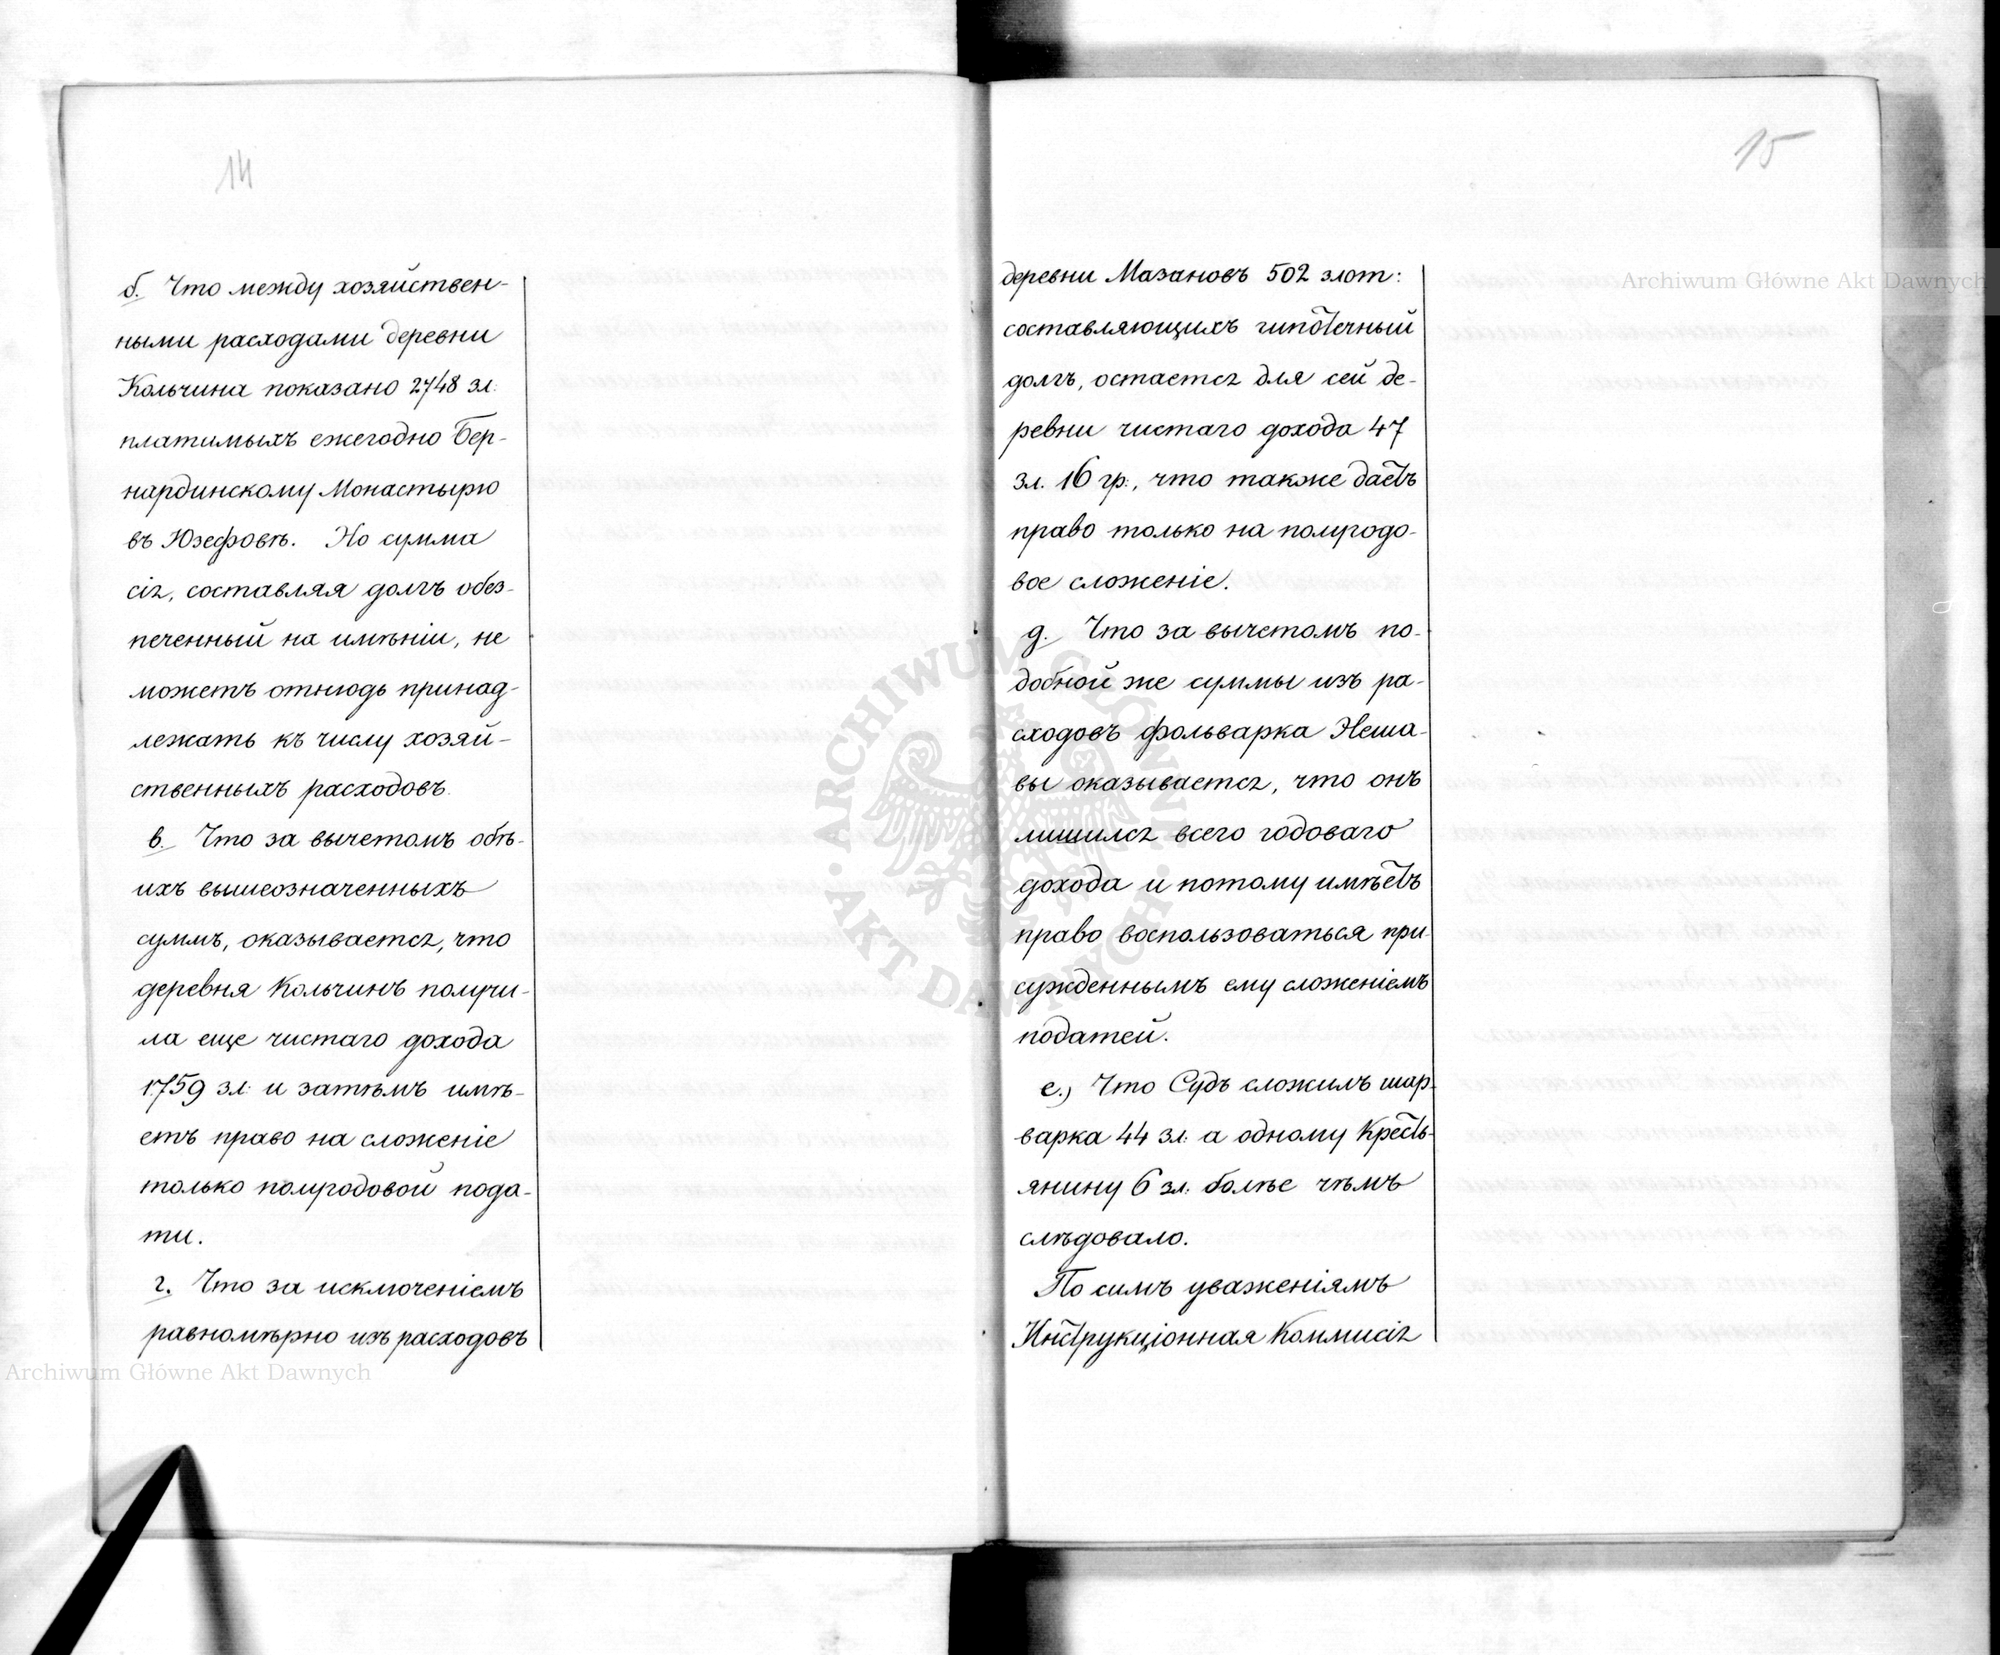 14
б. Что между хозяйствен-
ными расходами деревни
Кольчина показано 2748 зл.
платимыхъ ежегодно Бер-
нардинскому Монастырю
въ Юзефовѣ. Но сумма
сія, составляя долгъ обез-
печенный на имѣніи, не
можетъ отнюдь принад-
лежать къ числу хозяй-
ственныхъ расходовъ.
в. Что за вычетомъ обѣ-
ихъ вышеозначенныхъ
суммъ, оказывается, что
деревня Кольчинъ получи-
ла еще чистаго дохода
1759 зл. и затѣмъ имѣ-
етъ право на сложеніе
только полугодовой пода-
ти.
г. Что за исключеніемъ
равномѣрно изъ расходовъ
15
деревни Мазановъ 502 злот:
составляющихъ гипотечный
долгъ, остается для сей де-
ревни чистаго дохода 47
зл. 16 гр., что также даетъ
право только на полугодо-
вое сложеніе.
д. Что за вычетомъ по-
добной же суммы изъ ра-
сходовъ фольварка Неша-
вы оказывается, что онъ
лишился всего годоваго
дохода и потому имѣетъ
право воспользоваться при-
сужденнымъ ему сложеніемъ
податей.
е.) Что Судъ сложилъ шар-
варка 44 зл. а одному Кресть-
янину 6 зл. болѣе чѣмъ
слѣдовало.
По симъ уваженіямъ
Инструкціонная Коммисія
Archiwum Główne Akt Dawnych
Archiwum Główne Akt Dawnych
ARCHIWUM GŁÓWNE AKT DAWNYCH